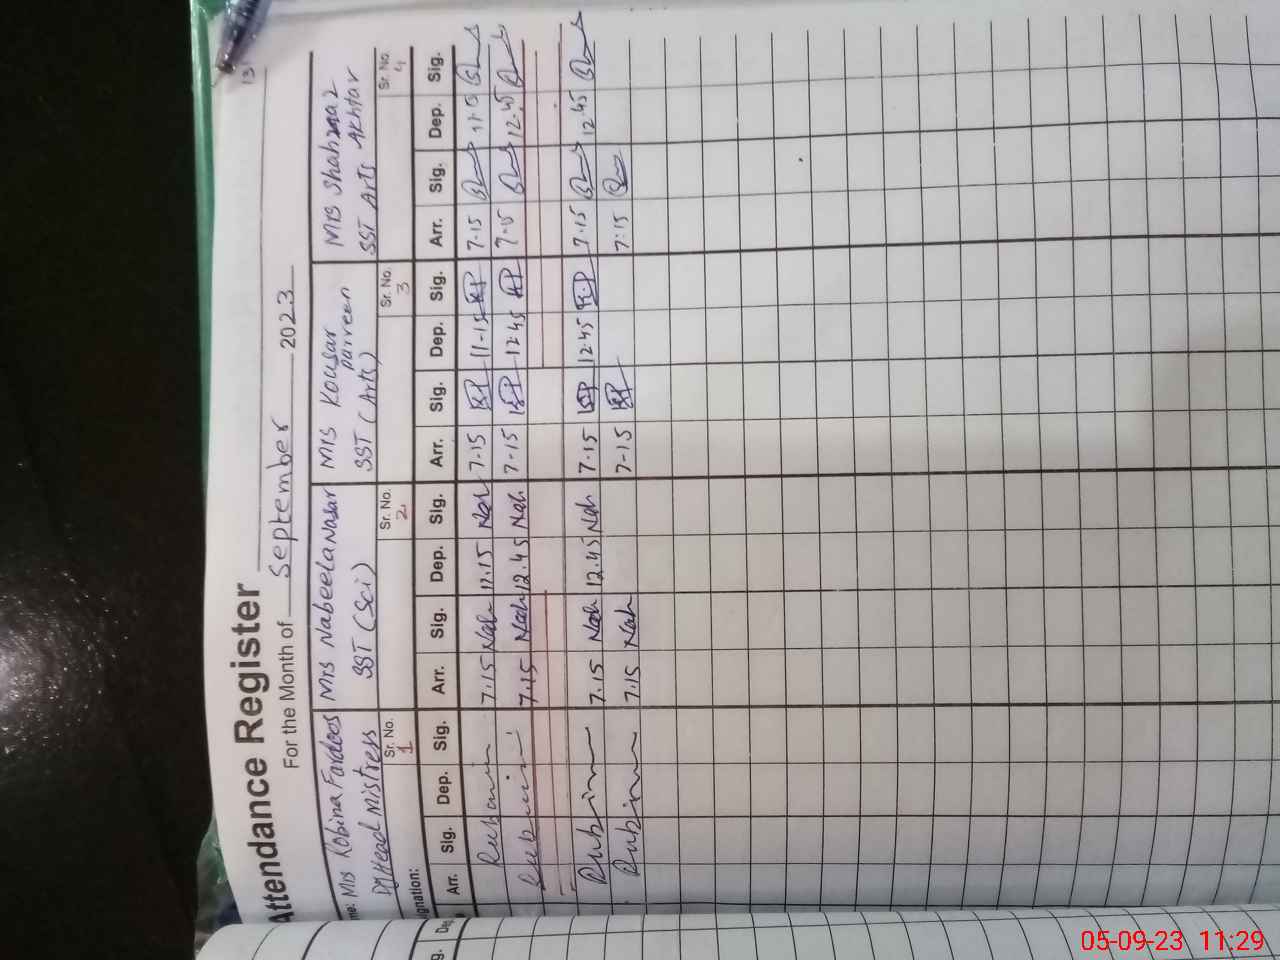 13
Attendance Register
For the Month of September 2023
me: Mrs Robina Fardoos Mrs Nabeela Nasar Mrs Kousar Parveen Mrs Shahnaz Akhtar
Dy Head Mistress SST (Sci) SST (Arts) SST Arts
Sr. No. 1 Sr. No. 2 Sr. No. 3 Sr. No. 4
ignation:
Arr. Sig. Dep. Sig. Arr. Sig. Dep. Sig. Arr. Sig. Dep. Sig. Arr. Sig. Dep. Sig.
Rubina 7.15 Nah 11.15 Nah 7-15 KP 11-15 KP 7-15 11-15
Rubina 7.15 Nah 12.45 Nah 7-15 KP 12.45 KP 7-15 12.45
Rubina 7.15 Nah 12.45 Nah 7-15 KP 12.45 KP 7-15 12.45
Rubina 7.15 Nah 7-15 KP 7.15
g. Dep. Sig.
05-09-23 11:29